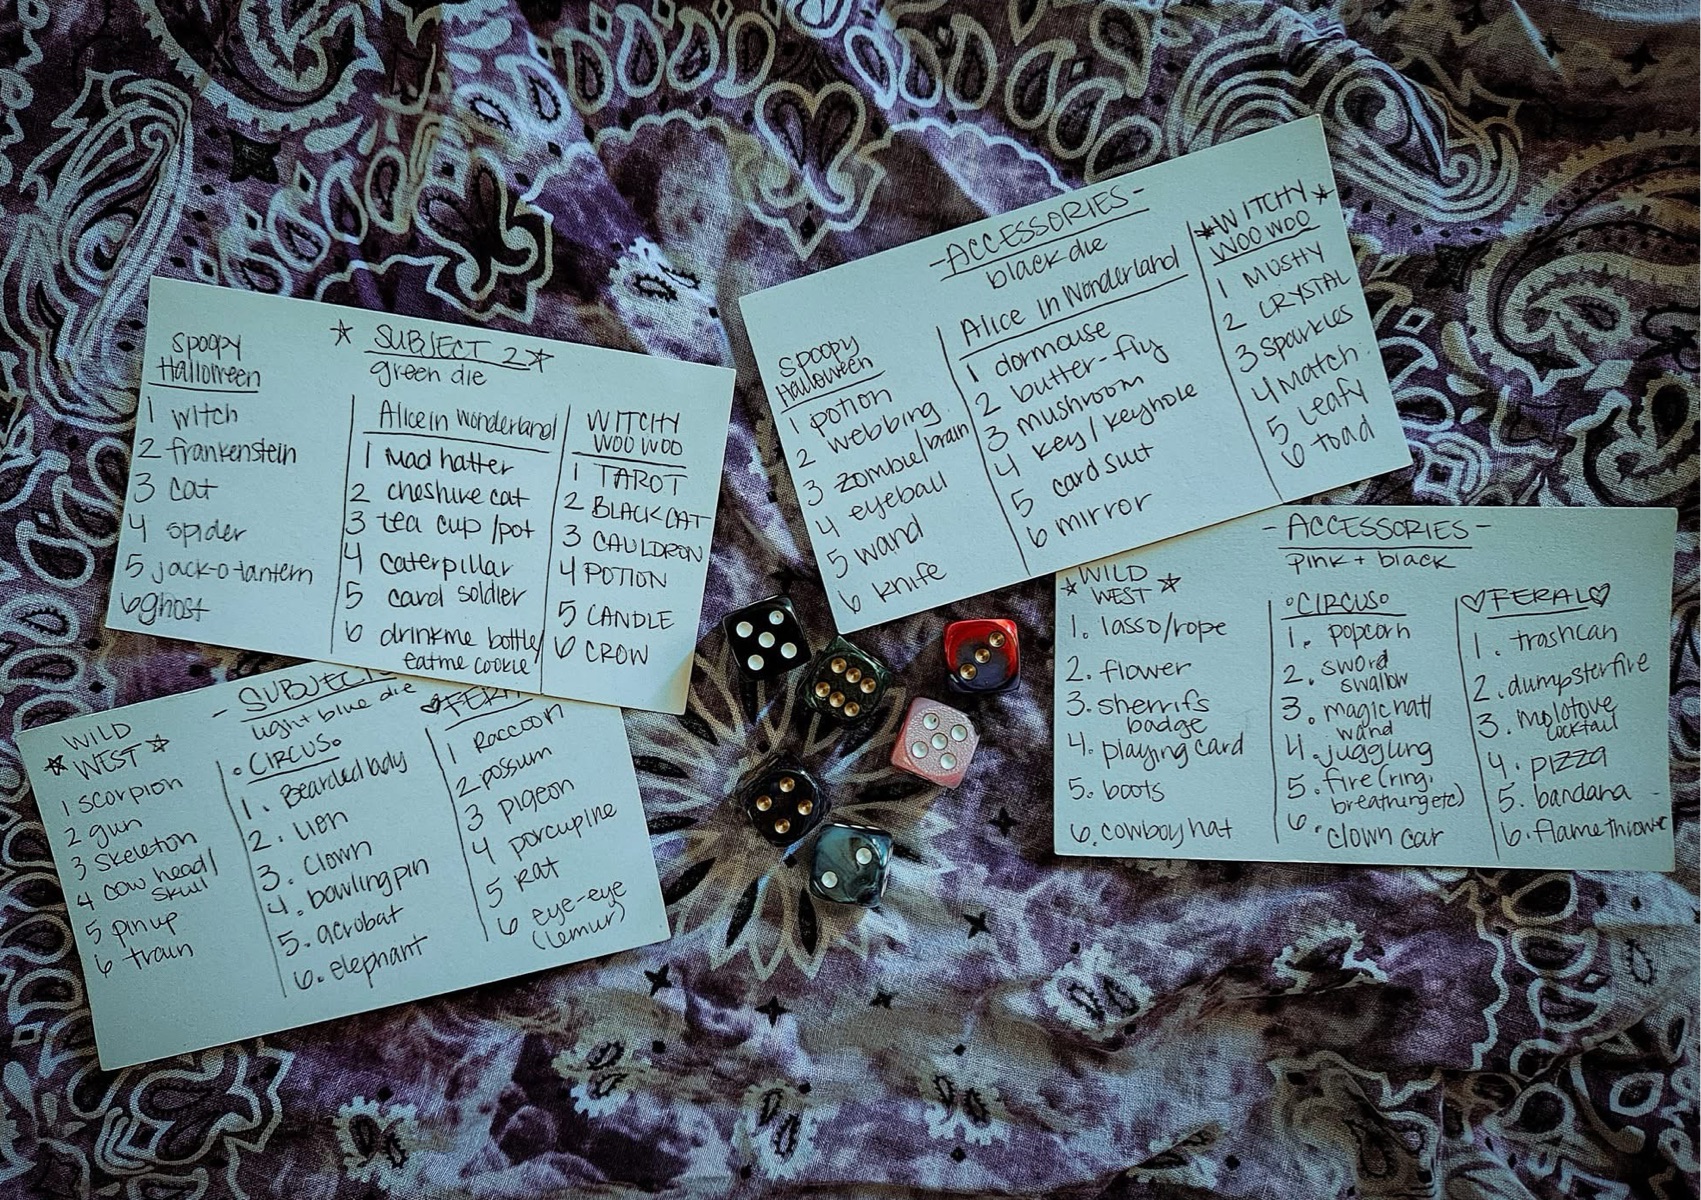 ☆ SUBJECT 2 ☆
green die
SPOOPY
Halloween
1 witch
2 frankenstein
3 cat
4 spider
5 jack-o-lantern
6 ghost
Alice in Wonderland
1 Mad hatter
2 cheshire cat
3 tea cup/pot
4 caterpillar
5 card soldier
6 drinkme bottle/
eatme cookie
WITCHY
WOO WOO
1 TAROT
2 BLACK CAT
3 CAULDRON
4 POTION
5 CANDLE
6 CROW
-ACCESSORIES-
black die
SPOOPY
Halloween
1 potion
2 webbing
3 zombie/brain
4 eyeball
5 wand
6 knife
Alice in Wonderland
1 dormouse
2 butter-fly
3 mushroom
4 key/keyhole
5 card suit
6 mirror
☆WITCHY☆
WOO WOO
1 MUSHY
2 CRYSTAL
3 sparkles
4 Match
5 Leafy
6 toad
- SUBJECT
light blue die
☆ WILD
WEST ☆
1 scorpion
2 gun
3 skeleton
4 cow head/
skull
5 pin up
6 train
°CIRCUS°
1. Bearded lady
2. Lion
3. Clown
4. bowling pin
5. acrobat
6. elephant
♡FERAL
1 Raccoon
2 possum
3 pigeon
4 porcupine
5 Rat
6 eye-eye
(lemur)
- ACCESSORIES -
pink + black
☆ WILD
WEST ☆
1. lasso/rope
2. flower
3. sherrifs
badge
4. playing card
5. boots
6. cowboy hat
°CIRCUS°
1. popcorn
2. sword
swallow
3. magic hat/
wand
4. juggling
5. fire (ring,
breathing etc)
6. clown car
♡FERAL♡
1. trashcan
2. dumpsterfire
3. molotove
cocktail
4. pizza
5. bandana
6. flamethrower